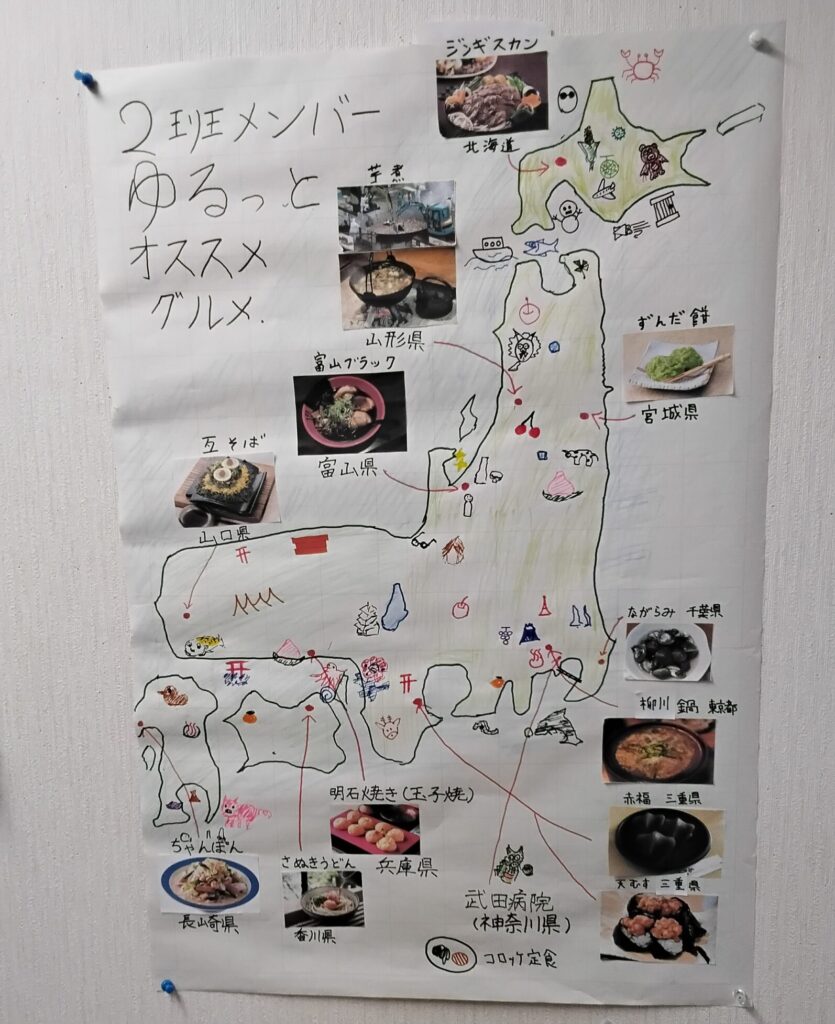 2班メンバー
ゆるっと
オススメ
グルメ.
ジンギスカン
北海道
芋煮
山形県
ずんだ餅
宮城県
富山ブラック
富山県
瓦そば
山口県
ながらみ 千葉県
柳川鍋 東京都
赤福 三重県
天むす 三重県
明石焼き(玉子焼)
兵庫県
さぬきうどん
香川県
ちゃんぽん
長崎県
武田病院
(神奈川県)
コロッケ定食